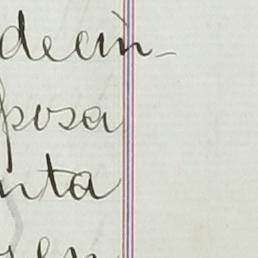 decin-
posa
nta